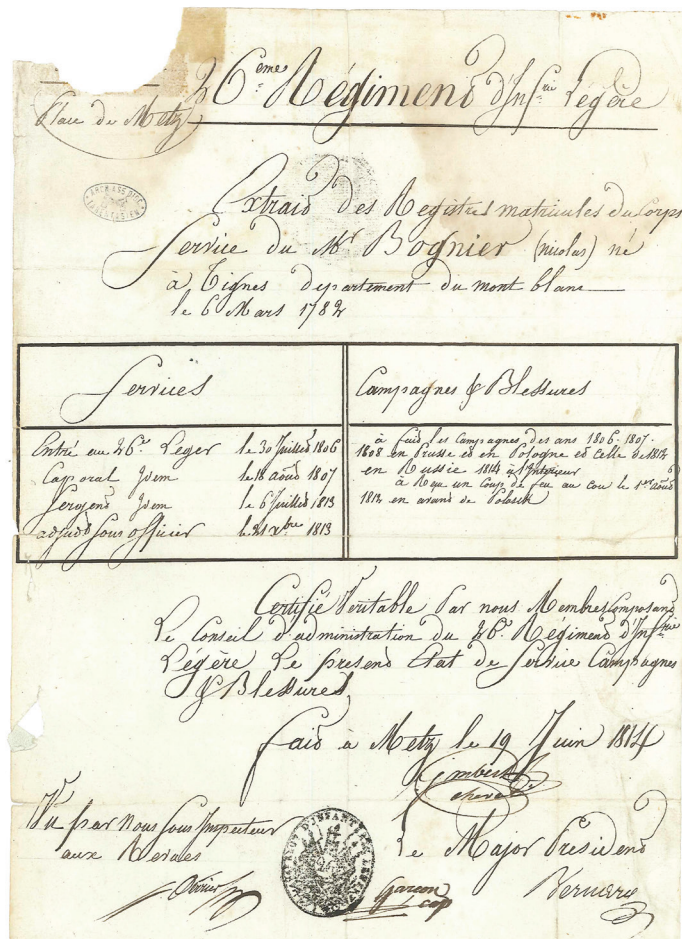 26.eme Régiment d'Inf.rie Légère
Place de Metz
Extrait des Registres matricules du Corps
Service du Mr Bognier (nicolas) né
à Tignes departement du mont blanc
le 6 Mars 1782
Services
Campagnes & Blessures
Entré au 26.e Léger le 30 Juillet 1806
Caporal Idem le 18 août 1807
Sergent Idem le 6 Juillet 1813
adjud.t Sous officier le 21 Xbre 1813
à fait les Campagnes des ans 1806. 1807.
1808 en Prusse et en Pologne et celle de 1812
en Russie 1814 à l'Intérieur
à Reçu un Coup de feu au Cou le 1.er août
1812 en avant de Polosk
Certifié Veritable Par nous Membres Composant
Le Conseil d'administration du 26.e Régiment d'Inf.rie
Légère Le present Etat de Service Campagnes
& Blessures
Fait à Metz le 19 Juin 1814
Vu par Nous Sous Inspecteur
aux Revues
Le Major Président